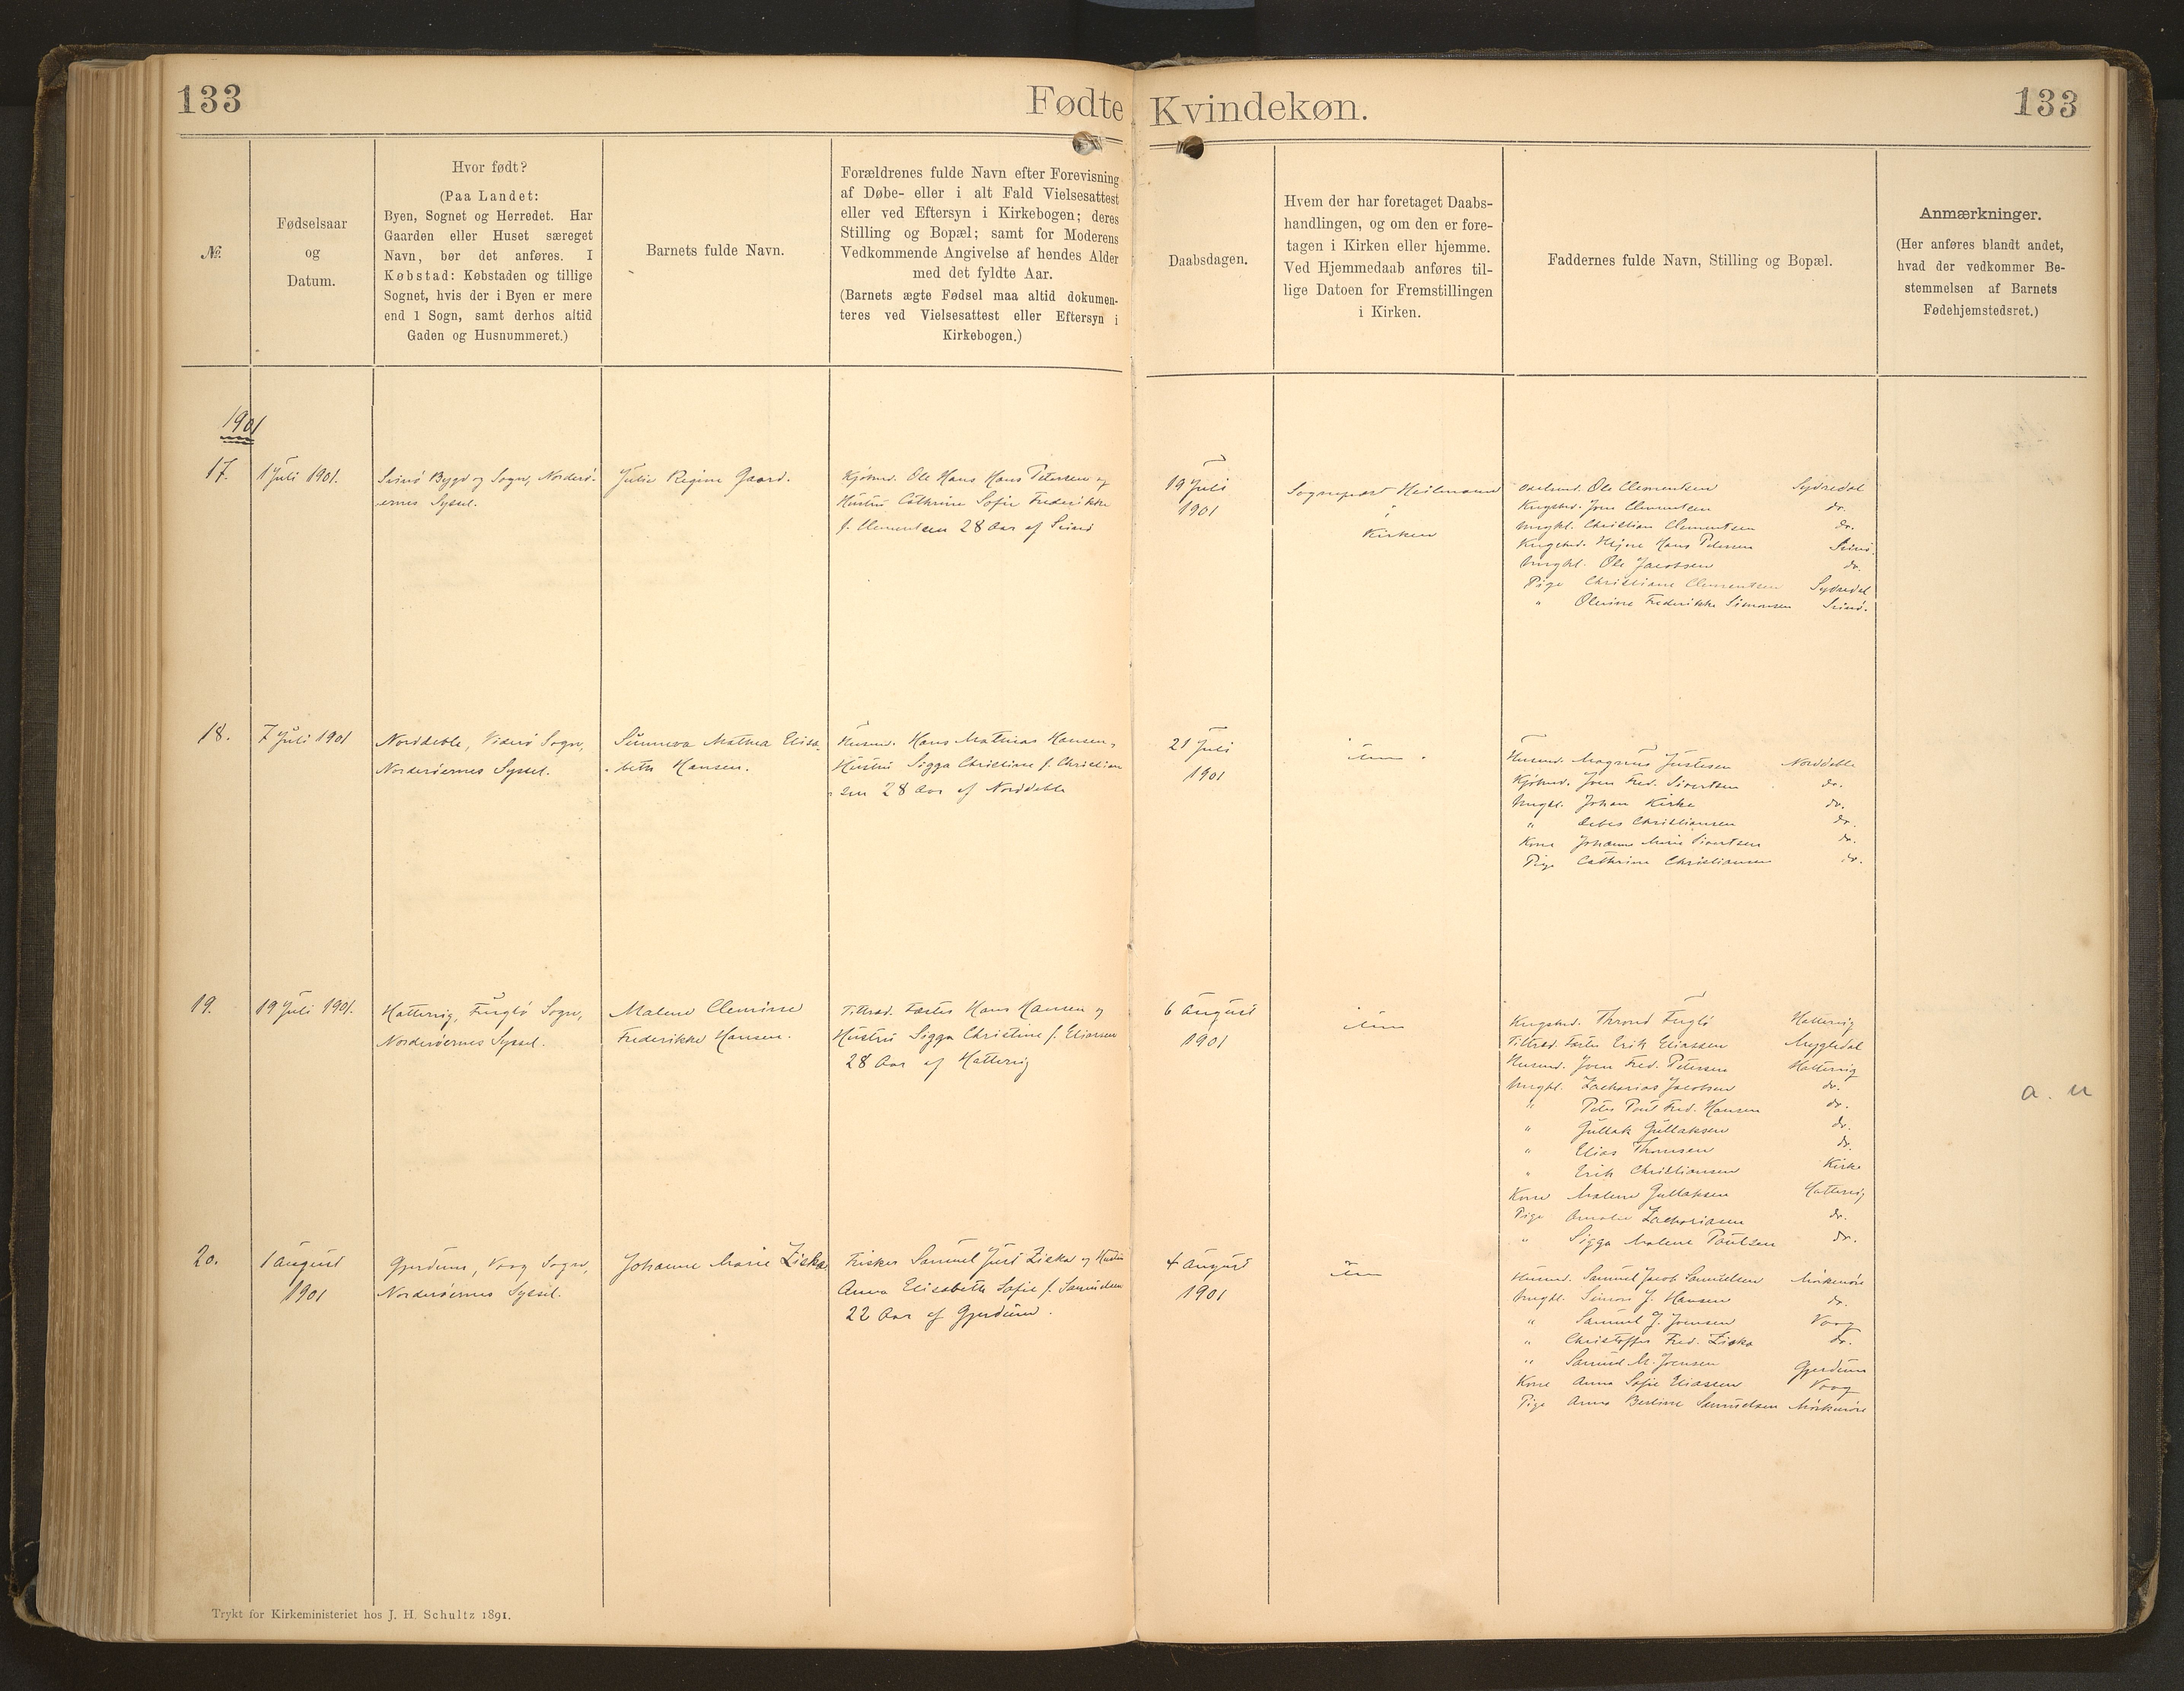 133
Fødte
Kvindekøn.
133
№.
Fødselsaar
og
Datum.
Hvor født?
(Paa Landet:
Byen, Sognet og Herredet. Har
Gaarden eller Huset særeget
Navn, bør det anføres. I
Købstad: Købstaden og tillige
Sognet, hvis der i Byen er mere
end 1 Sogn, samt derhos altid
Gaden og Husnummeret.)
Barnets fulde Navn.
Forældrenes fulde Navn efter Forevisning
af Døbe- eller i alt Fald Vielsesattest
eller ved Eftersyn i Kirkebogen; deres
Stilling og Bopæl; samt for Moderens
Vedkommende Angivelse af hendes Alder
med det fyldte Aar.
(Barnets ægte Fødsel maa altid dokumen-
teres ved Vielsesattest eller Eftersyn i
Kirkebogen.)
Daabsdagen.
Hvem der har foretaget Daabs-
handlingen, og om den er fore-
tagen i Kirken eller hjemme.
Ved Hjemmedaab anføres til-
lige Datoen for Fremstillingen
i Kirken.
Faddernes fulde Navn, Stilling og Bopæl.
Anmærkninger.
(Her anføres blandt andet,
hvad der vedkommer Be-
stemmelsen af Barnets
Fødehjemstedsret.)
1901
17.
1 Juli 1901.
Svinø Bygd og Sogn, Norderø-
ernes Syssel.
Julie Regine Gaard.
Kjøbmd. Ole Hans Hans Petersen og
Hustru Cathrine Sofie Frederikke
f. Clementsen 28 Aar af Svinø
19 Juli
1901
Sognepræst Heilmann
i
Kirken
Ole Clementsen Sydredal
Kngsbd. Joen Clementsen do.
Ungkl. Christian Clementsen do.
Kngsbd. Hans Petersen Svinø.
Ungkl. Ole Jacobsen do.
Pige Christiane Clementsen Sydredal
" Olevine Frederikke Simonsen Svinø.
18.
7 Juli 1901
Norddeble, Viderø Sogn,
Norderøernes Syssel.
Sunneva Mathea Elisa-
beth Hansen.
Husmd. Hans Mathias Hansen,
Hustru Sigga Christine f. Christian
sen 28 Aar af Norddeble
21 Juli
1901
Husmd. Magnus Justesen Norddeble
Kjøbmd. Joen Fred. Sivertsen do.
Ungkl. Johan Kirke do.
" Debes Christiansen do.
Kone Johanne Marie Sivertsen do.
Pige Cathrine Christiansen do.
19.
19 Juli 1901.
Hattervig, Fuglø Sogn,
Norderøernes Syssel.
Malene Clemine
Frederikke Hansen.
Tiltræd. Fæster Hans Hansen og
Hustru Sigga Christine f. Eliassen
28 Aar af Hattervig
6 August
1901
Kngsbd. Thrond Fuglø Hattervig
Tiltræd. Fæster Erik Eliassen Mygledal
Husmd. Joen Fred. Petersen Hattervig
Ungkl. Zacharias Jacobsen do.
" Peter Poul Fred. Hansen do.
" Gullak Gullaksen do.
" Elias Thomsen do.
" Erik Christiansen Kirke
Kone Malene Gullaksen Hattervig
Pige Amalie Zachariasen do.
" Sigga Malene Poulsen do.
a. u
20.
1 August
1901
Gjerdum, Vaag Sogn,
Norderøernes Syssel.
Johanne Marie Ziska
Fisker Samuel Just Ziska og Hustru
Anna Elisabeth Sofie f. Samuelsen
22 Aar af Gjerdum.
4 August
1901
Husmd. Samuel Jacob Samuelsen Mørkenøre
Ungkl. Simon J. Hansen do.
" Samuel J. Joensen Vaag
" Christoffer Fred. Ziska do.
" Samuel M. Joensen Gjerdum
Kone Anna Sofie Eliassen Vaag
Pige Anna Berline Samuelsen Mørkenøre
Trykt for Kirkeministeriet hos J. H. Schultz 1891.